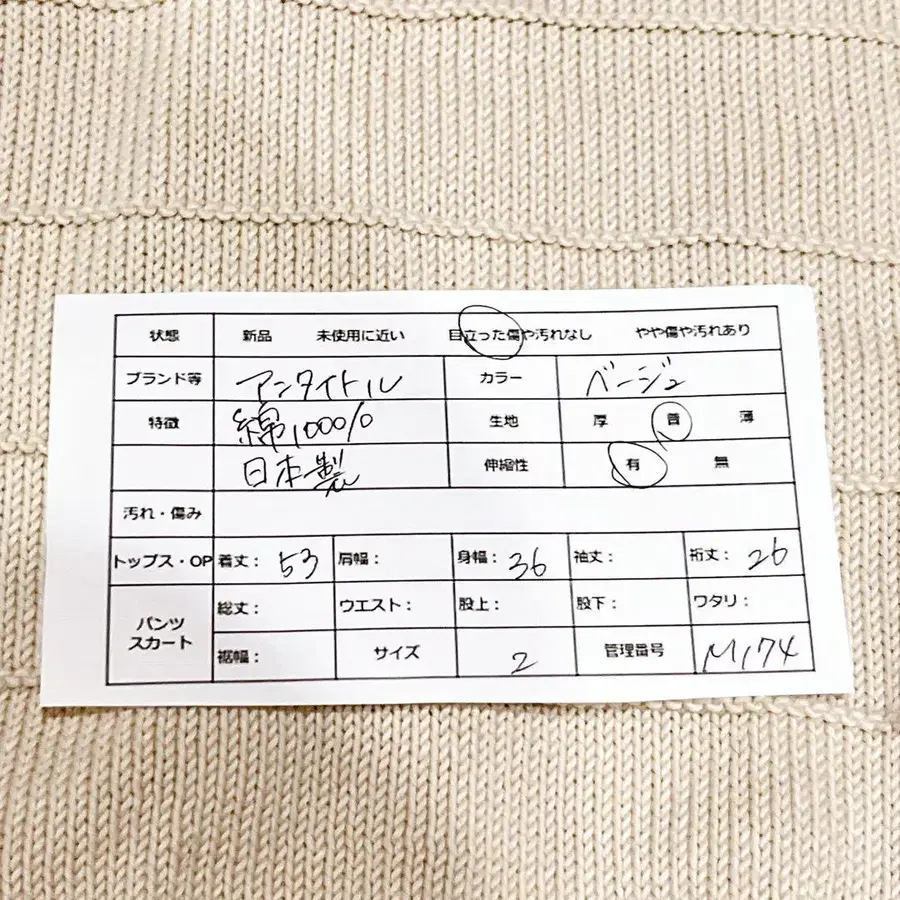 状態 新品 未使用に近い 目立った傷や汚れなし やや傷や汚れあり
ブランド等 アンタイトル カラー ベージュ
特徴 綿100% 生地 厚 普 薄
日本製 伸縮性 有 無
汚れ・傷み
トップス・OP 着丈: 53 肩幅: 身幅: 36 袖丈: 裄丈: 26
パンツ スカート 総丈: ウエスト: 股上: 股下: ワタリ:
裾幅: サイズ 2 管理番号 M174